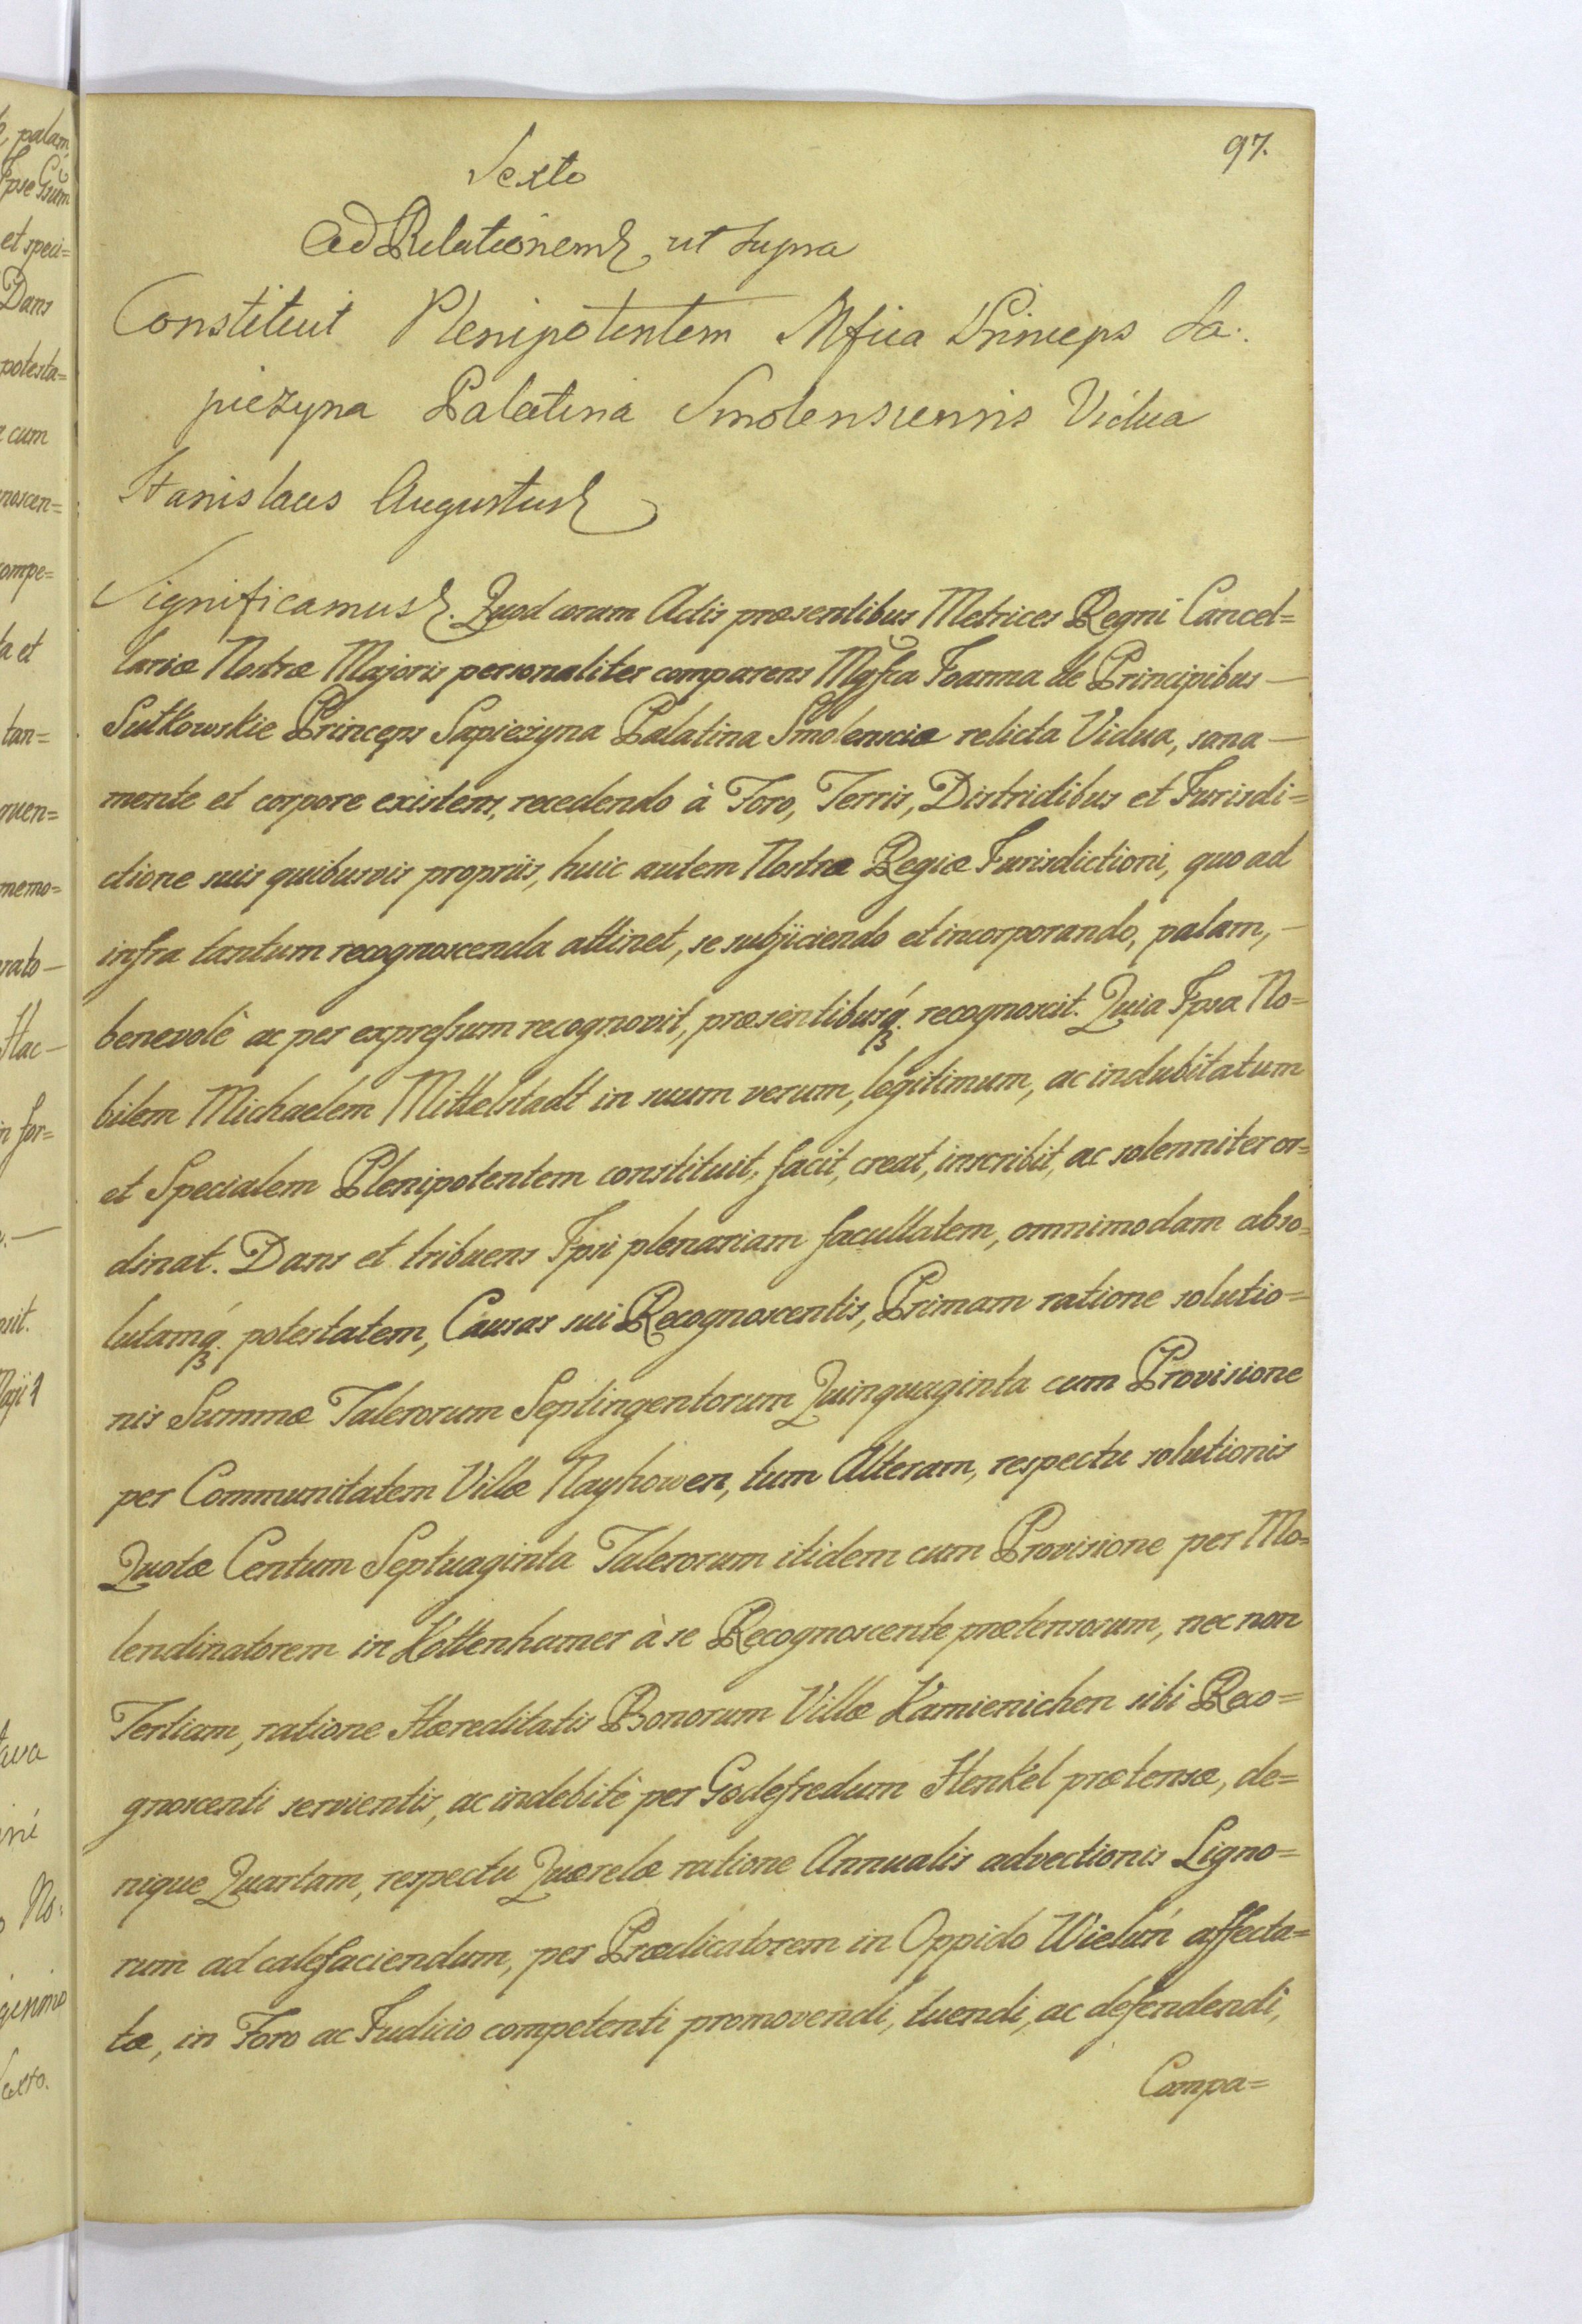 97.
Sexto
Ad Relationem ut supra
Constituit Plenipotentem Mfica Princeps Sa-
pieżyna Palatina Smolenscensis Vidua
Stanislaus Augustus
Significamus. Quod coram Actis præsentibus Metrices Regni Cancel=
lariæ Nostræ Majoris personaliter comparens Mgfca Joanna de Principibus —
Sułkowskie Princeps Sapieżyna Palatina Smolensciæ relicta Vidua, sana —
mente et corpore existens, recedendo à Foro, Terris, Districtibus et Jurisdi=
ctione suis quibusvis propriis, huic autem Nostræ Regiæ Jurisdictioni, quo ad
infra tantum recognoscenda attinet, se subjiciendo et incorporando, palam, —
benevolè ac per expressum recognovit, præsentibusq́. recognoscit. Quia Ipsa No=
bilem Michaelem Mittelstadt in suum verum, legitimum, ac indubitatum
et Specialem Plenipotentem constituit, facit, creat, inscribit, ac solenniter or=
dinat. Dans et tribuens Ipsi plenariam facultatem, omnimodam abso=
lutamq́. potestatem, Causas sui Recognoscentis, Primam ratione solutio=
nis Summæ Talerorum Septingentorum Quinquaginta cum Provisione
per Communitatem Villæ Nayhowen, tum Alteram, respectu solutionis
Quotæ Centum Septuaginta Talerorum itidem cum Provisione per Mo=
lendinatorem in Kottenhamer à se Recognoscente prætensorum, nec non
Tertiam, ratione Hæreditatis Bonorum Villæ Kamienichen sibi Reco=
gnoscenti servientis, ac indebitè per Godefredum Henkel prætensæ, de=
nique Quartam, respectu Quærelæ ratione Annualis advectionis Ligno=
rum ad calefaciendum, per Prædicatorem in Oppido Wieluń affecta=
tæ, in Foro ac Judicio competenti promovendi, tuendi, ac defendendi,
Compa=